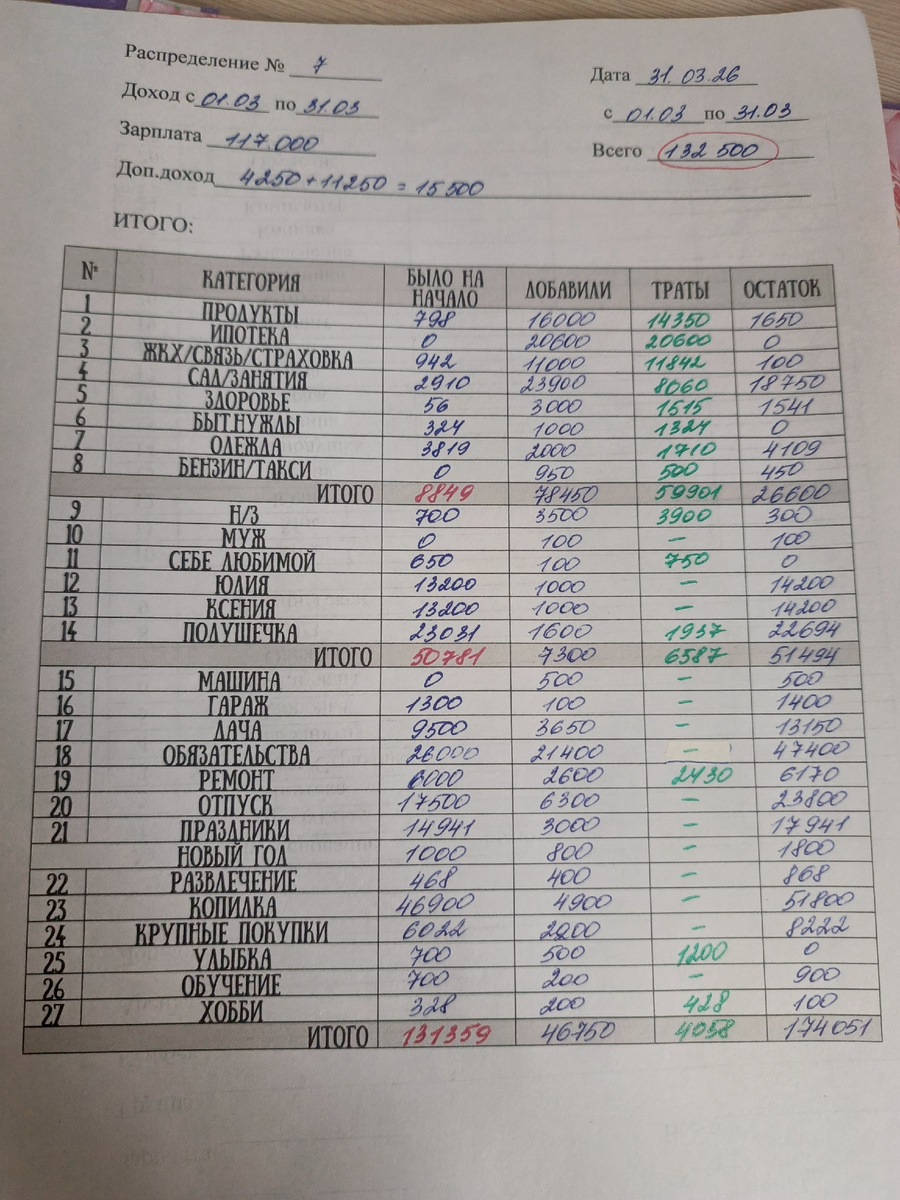 Распределение № 7
Дата 31.03.26
Доход с 01.03 по 31.03
с 01.03 по 31.03
Зарплата 117.000
Всего 132 500
Доп.доход 4250+11250 = 15500
ИТОГО:
№ КАТЕГОРИЯ БЫЛО НА НАЧАЛО ДОБАВИЛИ ТРАТЫ ОСТАТОК
1 ПРОДУКТЫ 798 16000 14350 1650
2 ИПОТЕКА 0 20600 20600 0
3 ЖКХ/СВЯЗЬ/СТРАХОВКА 942 11000 11842 100
4 САД/ЗАНЯТИЯ 2910 23900 8060 18750
5 ЗДОРОВЬЕ 56 3000 1515 1541
6 БЫТ.НУЖДЫ 324 1000 1324 0
7 ОДЕЖДА 3819 2000 1710 4109
8 БЕНЗИН/ТАКСИ 0 950 500 450
ИТОГО 8849 78450 59901 26600
9 Н/З 700 3500 3900 300
10 МУЖ 0 100 – 100
11 СЕБЕ ЛЮБИМОЙ 650 100 750 0
12 ЮЛИЯ 13200 1000 – 14200
13 КСЕНИЯ 13200 1000 – 14200
14 ПОДУШЕЧКА 23031 1600 1937 22694
ИТОГО 50781 7300 6587 51494
15 МАШИНА 0 500 – 500
16 ГАРАЖ 1300 100 – 1400
17 ДАЧА 9500 3650 – 13150
18 ОБЯЗАТЕЛЬСТВА 26000 21400 – 47400
19 РЕМОНТ 6000 2600 2430 6170
20 ОТПУСК 17500 6300 – 23800
21 ПРАЗДНИКИ 14941 3000 – 17941
НОВЫЙ ГОД 1000 800 – 1800
22 РАЗВЛЕЧЕНИЕ 468 400 – 868
23 КОПИЛКА 46900 4900 – 51800
24 КРУПНЫЕ ПОКУПКИ 6022 2200 – 8222
25 УЛЫБКА 700 500 1200 0
26 ОБУЧЕНИЕ 700 200 – 900
27 ХОББИ 328 200 428 100
ИТОГО 131359 46750 4058 174051